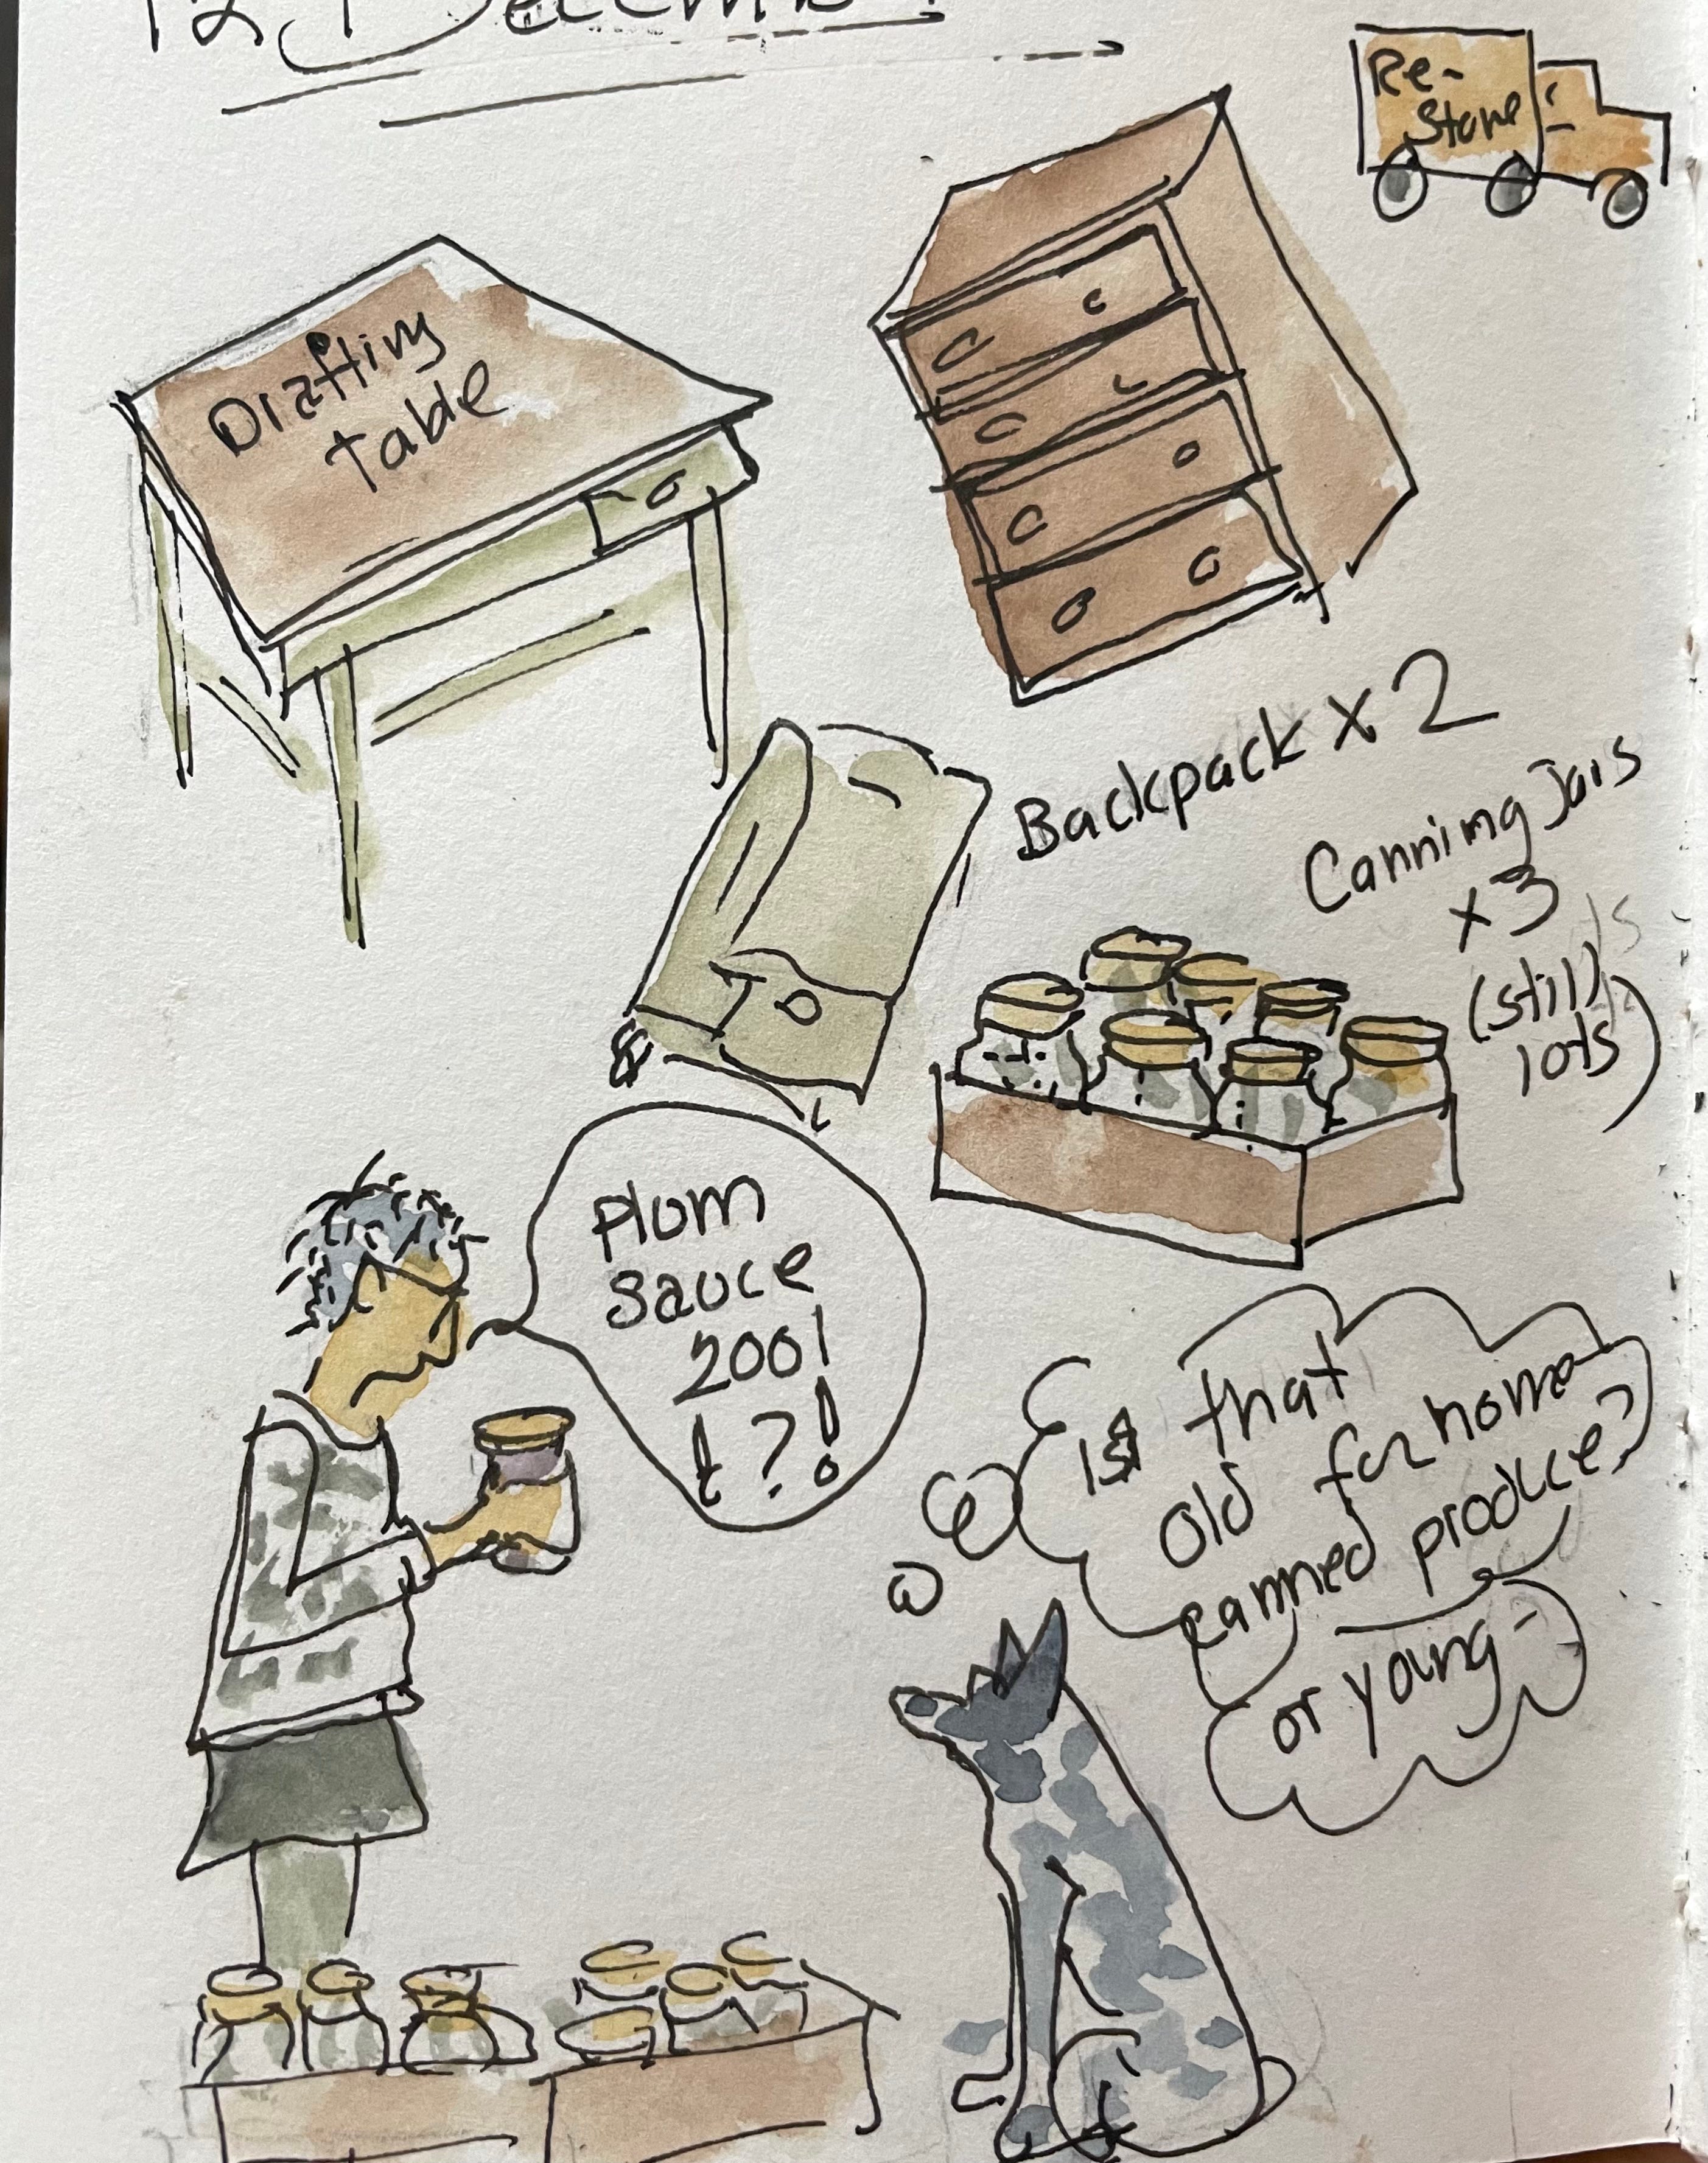 12 December
Re-
Store
Drafting
Table
Backpack x 2
Canning Jars
x3
(still
lots)
Plum
Sauce
2001
!?!
Is that
old for home
canned produce?
or young-